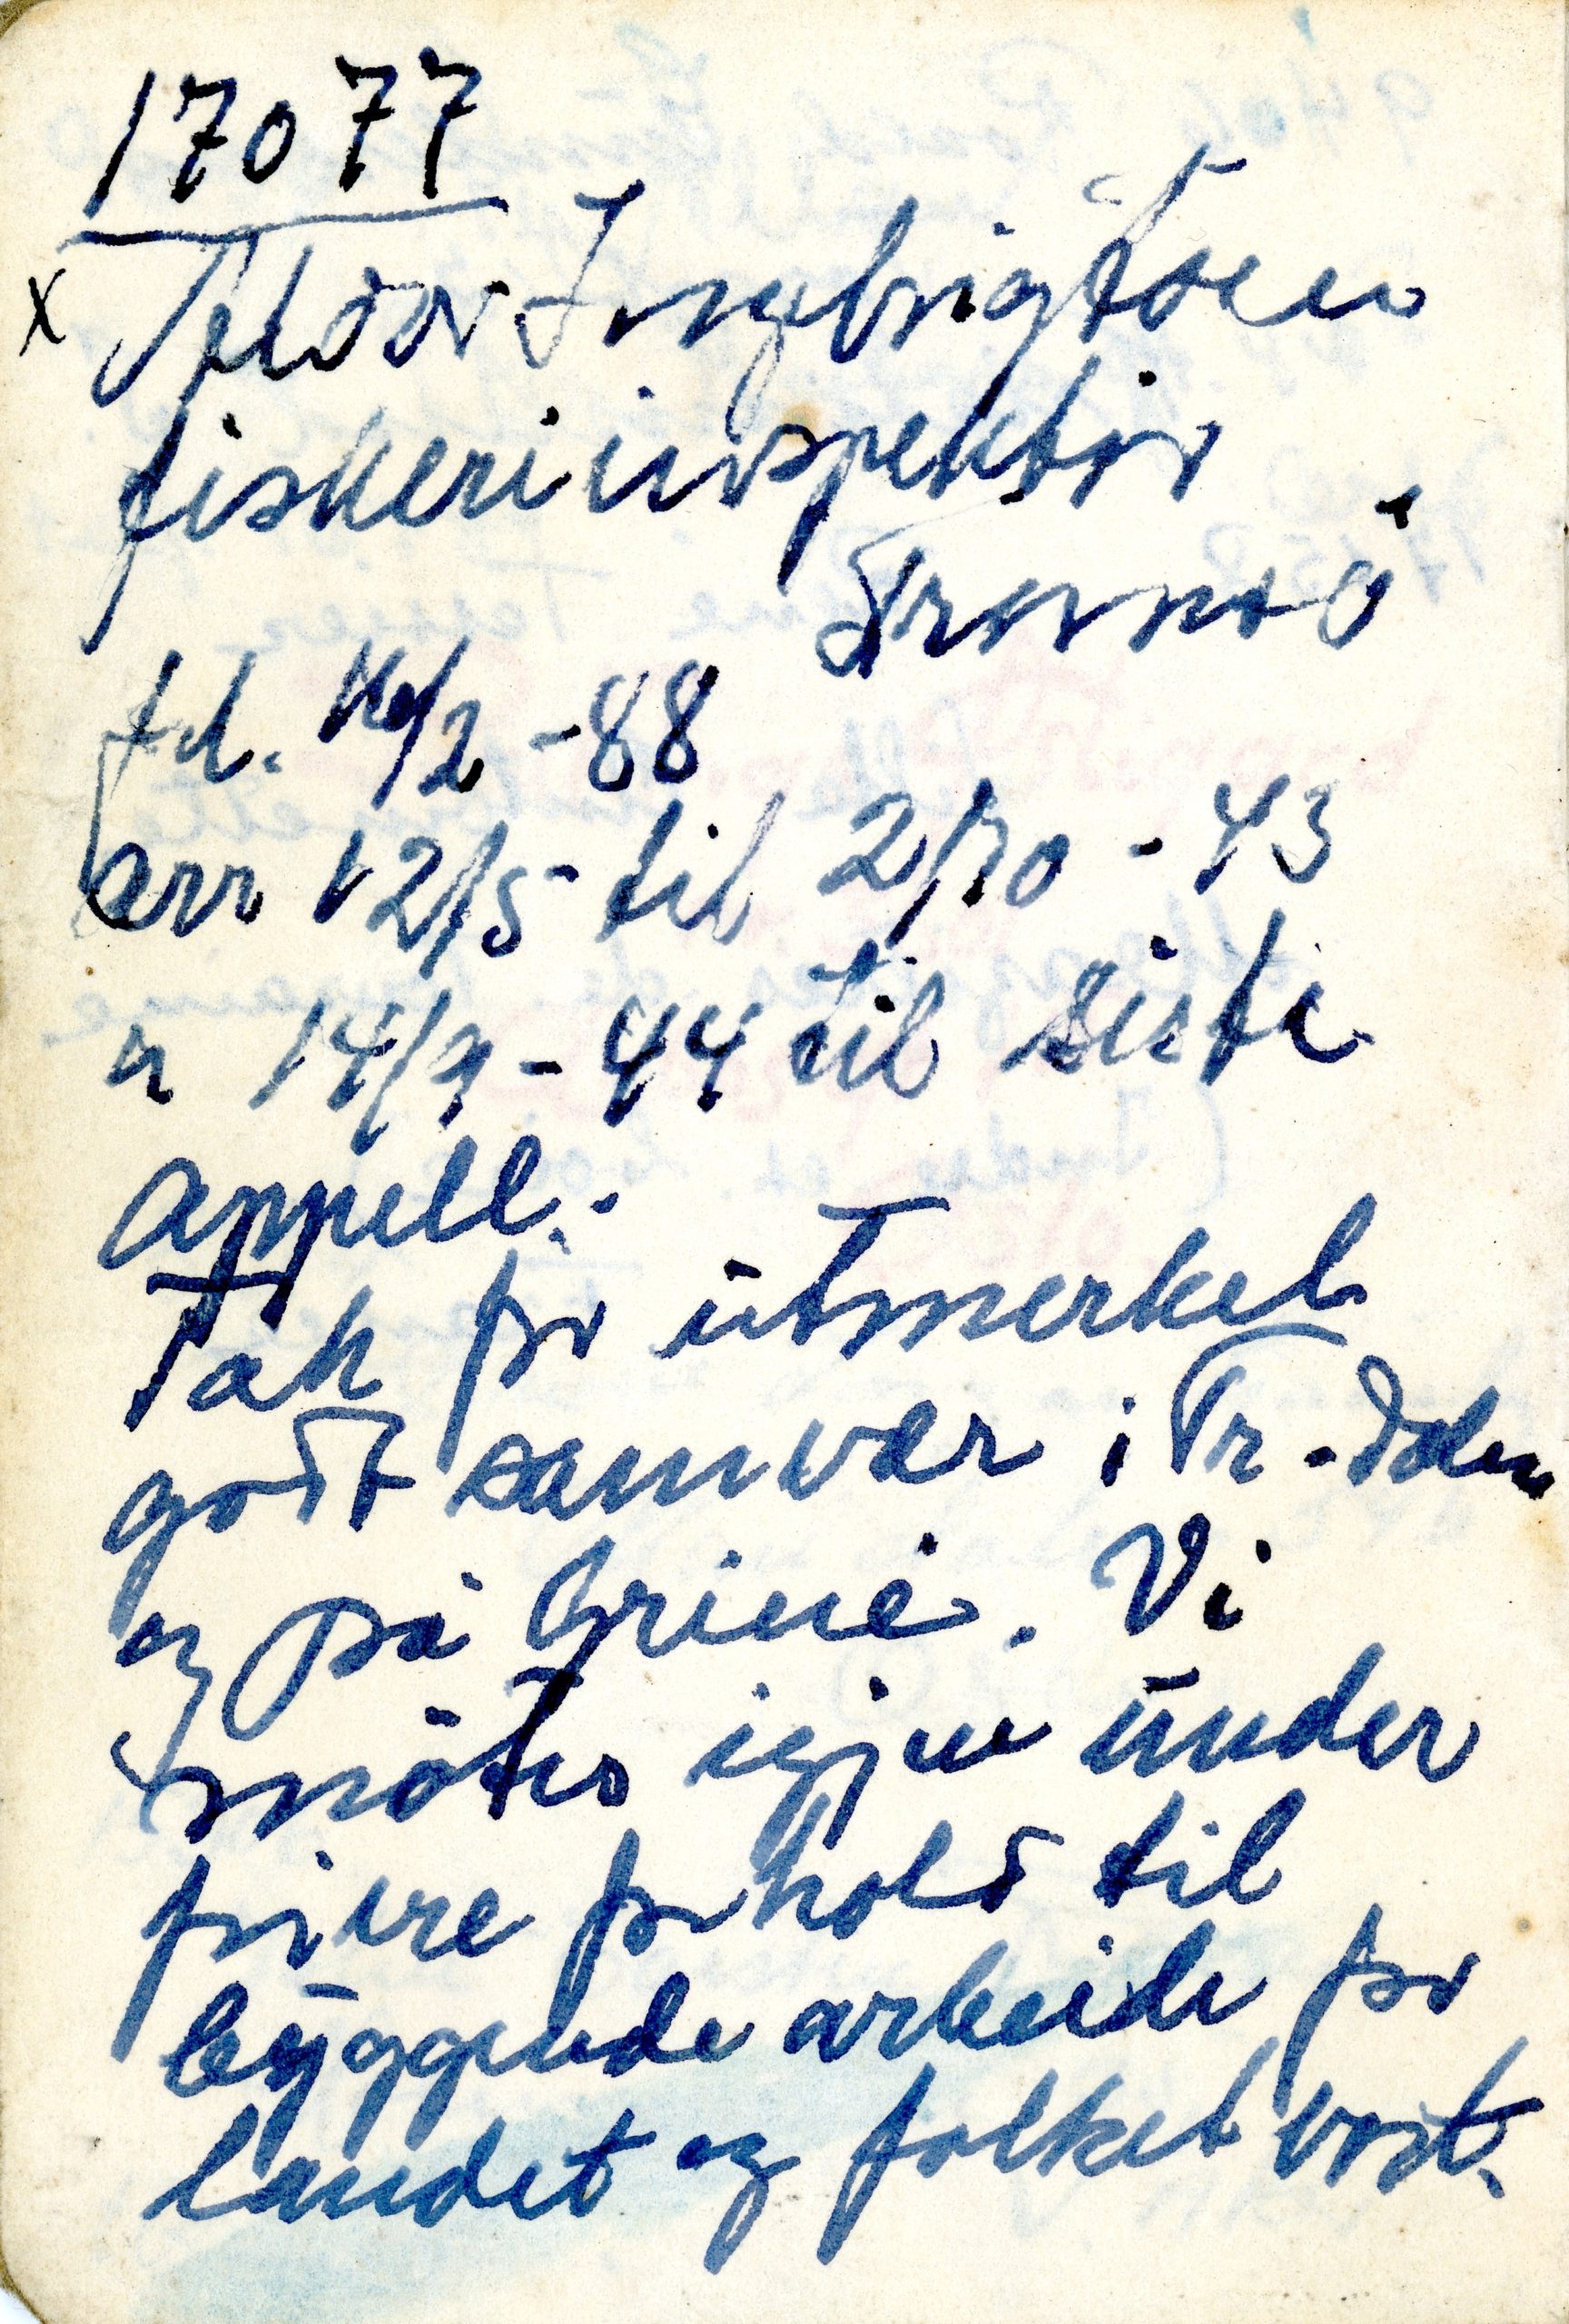 17077
x Peder Ingebrigtsen
fiskeriinspektør
Tromsö
fd. 16/2 - 88
arr 12/5 til 2/10 - 43
" 14/9 - 44 til siste
appell.
Takk for utmerket
godt samvær i Tr.dalen
og på Grini. Vi
møtes igjen under
friere forhold til
byggende arbeide for
landet og folket vort.